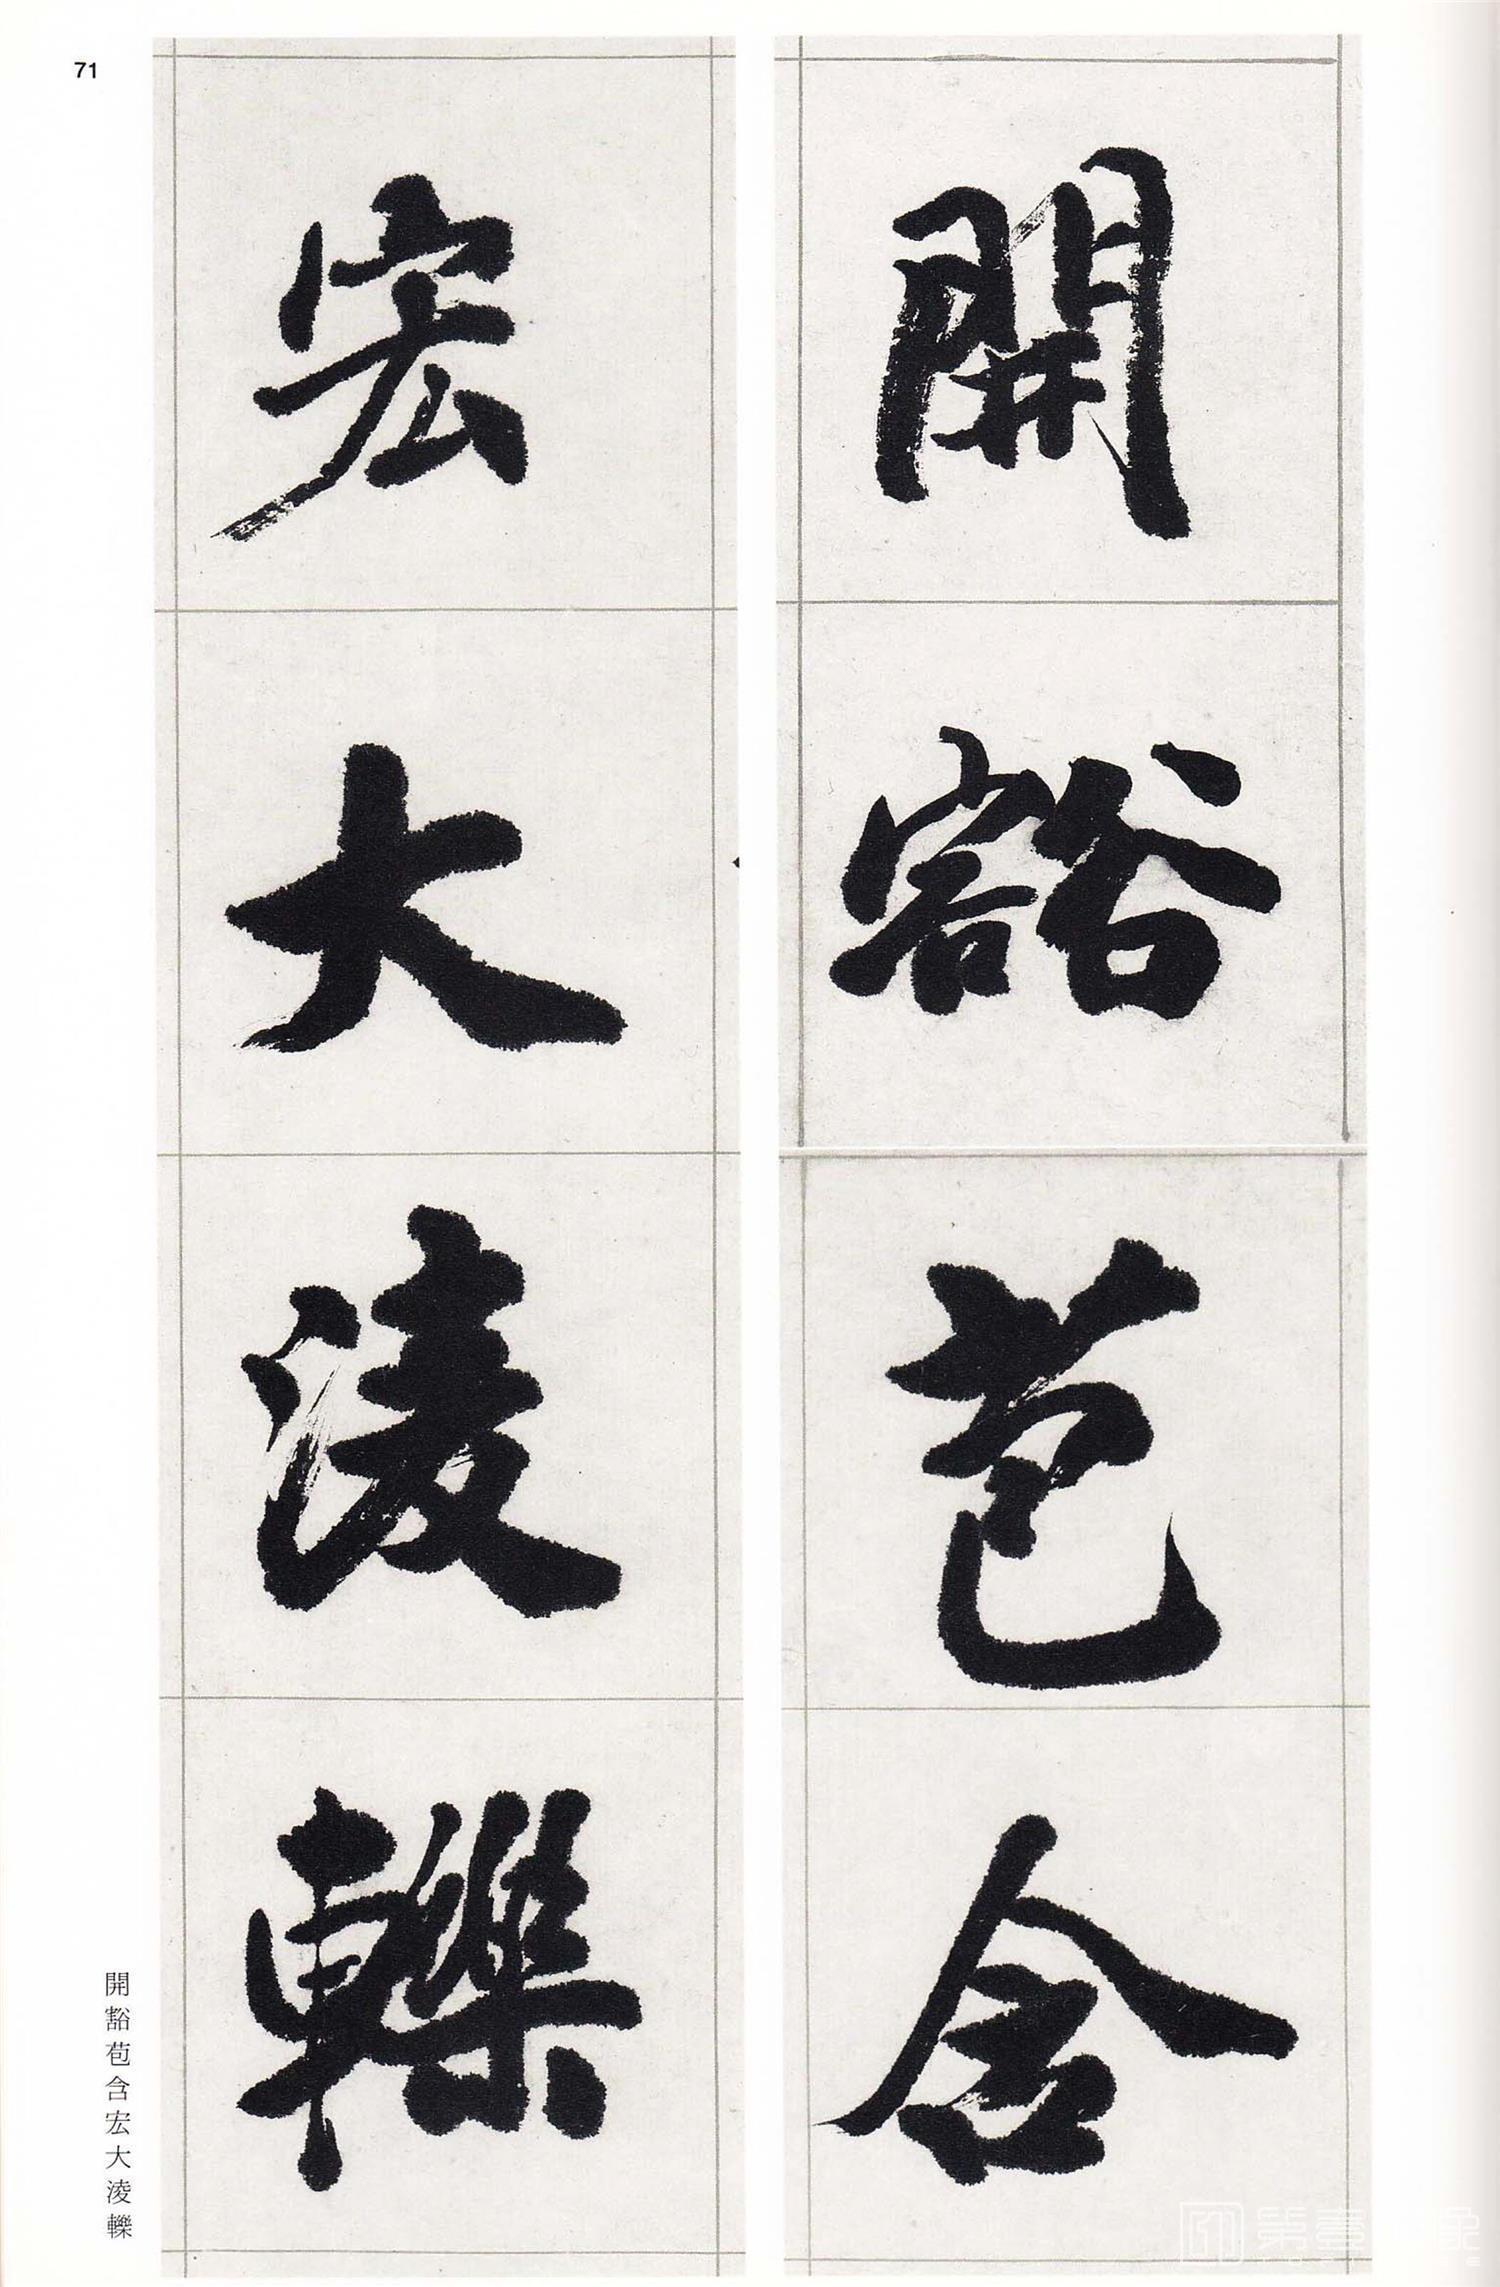 71
開豁苞含
宏大淩轢
開豁苞含宏大淩轢